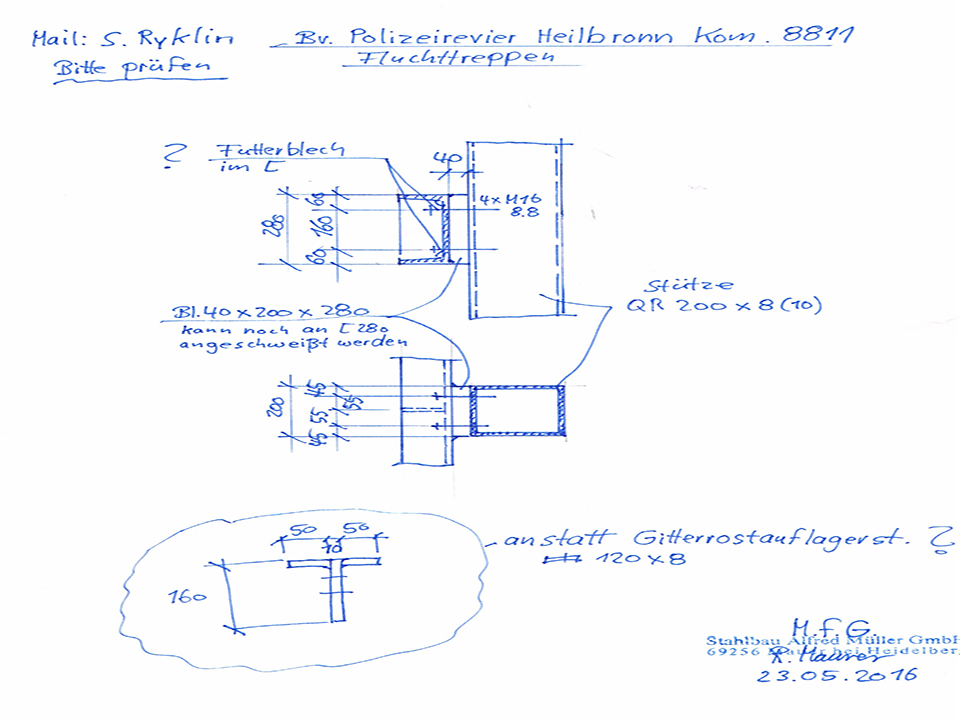 Mail: S. Ryklin
Bitte prüfen
Bv. Polizeirevier Heilbronn Kom. 8811
Fluchttreppen
?
Futterblech
im [
40
4xM16
8.8
60
160
60
280
Stütze
QR 200 x 8 (10)
Bl. 40 x 200 x 280
kann noch an [ 280
angeschweißt werden
45
55
55
45
200
50 50
10
160
anstatt Gitterrostauflagerst. ?
120 x 8
M.f.G.
Stahlbau Alfred Müller GmbH
69256 Mauer bei Heidelberg
R. Maurer
23.05.2016